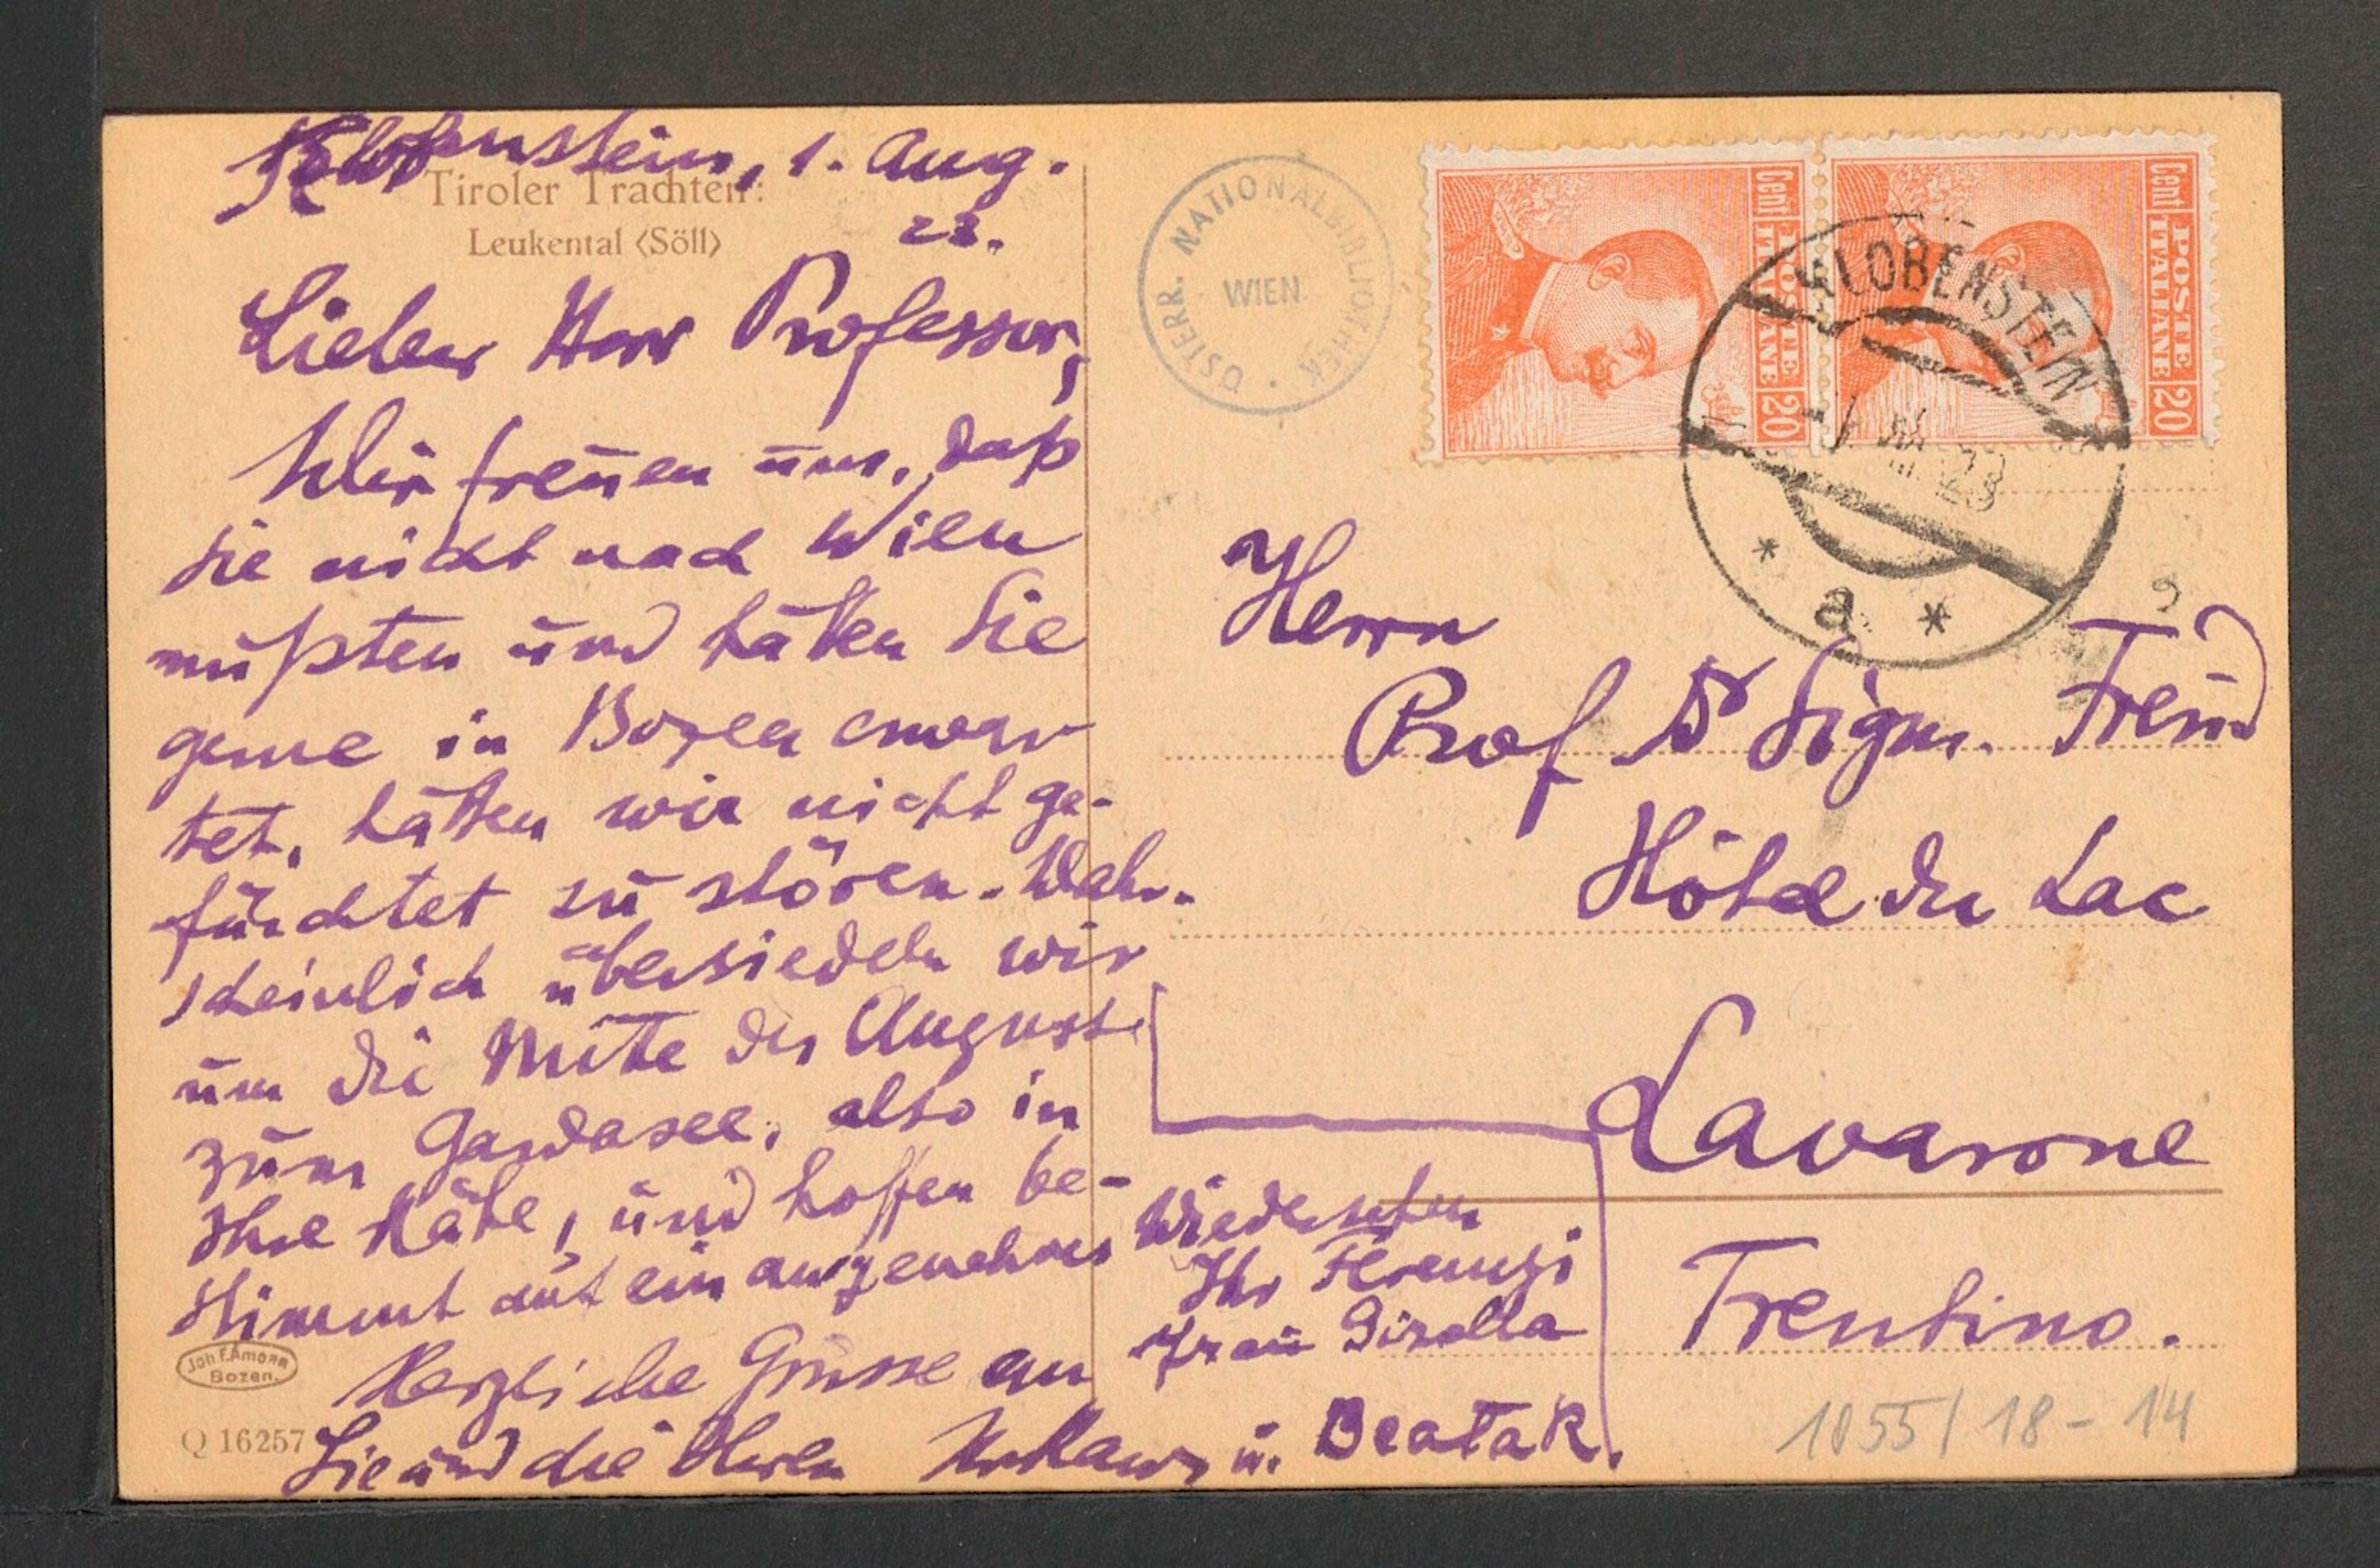 Klobenstein, 1. Aug.
23.
Tiroler Trachten:
Leukental <Söll>
Lieber Herr Professor,
Wir freuen uns, daß
Sie nicht nach Wien
mußten und hätten Sie
gerne in Bozen erwar-
tet, hätten wir nicht ge-
fürchtet zu stören. Wahr-
scheinlich übersiedeln wir
um die Mitte des August
zum Gardasee, also in
Ihre Nähe, und hoffen be-
stimmt auf ein angenehmes Wiedersehen
Ihr Ferenczi
Frau Gisella
Herzliche Grüsse an
Sie und die Ihren
u. Beata R.
Joh. F. Amonn
Bozen.
Q 16257
ÖSTERR. NATIONALBIBLIOTHEK
WIEN
Cent. 20
POSTE ITALIANE
Cent. 20
POSTE ITALIANE
KLOBENSTEIN
-1. VIII. 23
* a *
Herrn
Prof Dr Sigm. Freud
Hôtel du Lac
Lavarone
Trentino.
1055/18-14